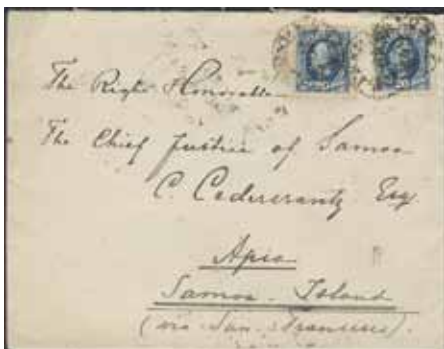 The Right Honorable
The Chief Justice of Samoa
C. Cedercrantz Esq.
Apia
Samoa-Island
(via San-Francisco).